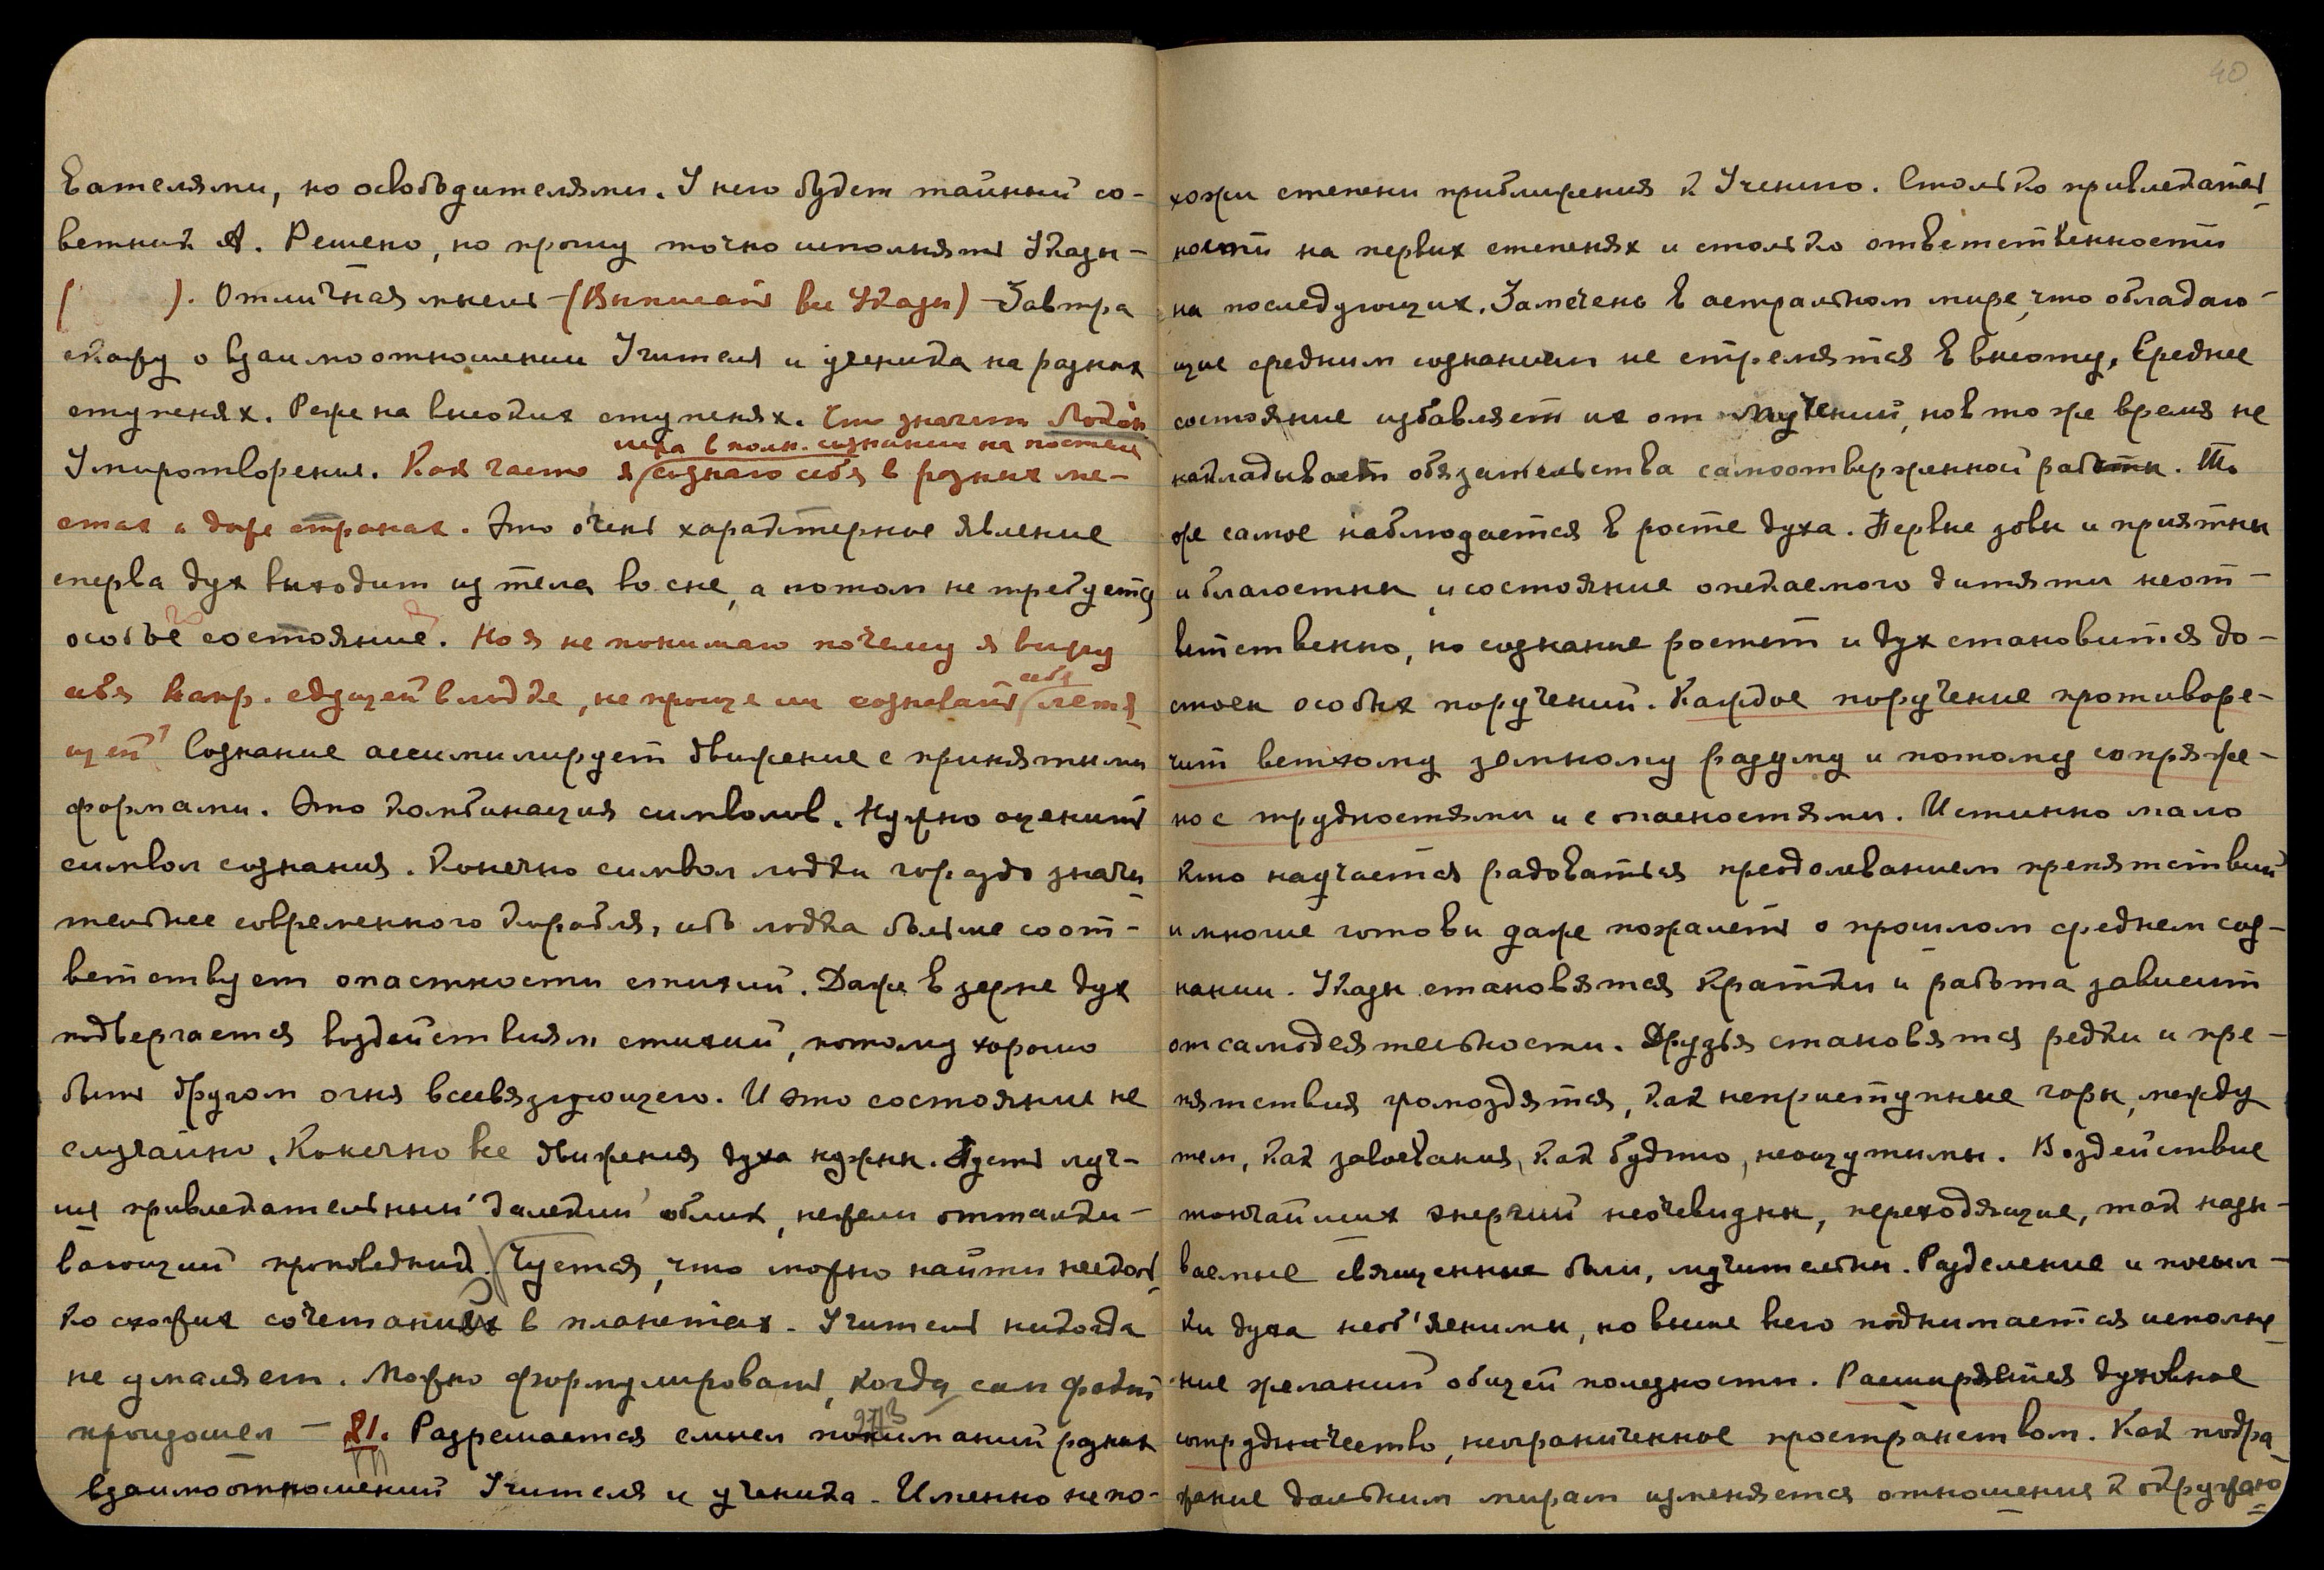 вателями, но освободителями. У него будет тайный со-
ветник А. Решено, но прошу точно исполнять Указы -
( ). Отличная мысль - (Выписать все Указы) - Завтра
скажу о взаимоотношении Учителя и ученика на разных
ступенях. Реже на высоких ступенях. Что значит
Умиротворения. Как часто я сознаю себя в разных ме-
лежа в полн. сознании на постели
стах и даже странах. Это очень характерное явление
сперва дух выходит из тела во сне, а потом не требуется
особое состояние. Но я не понимаю почему я вижу
себя напр. едущей в лодке, не проще ли сознавать себя летя-
щей? Сознание ассимилирует движение с принятыми
формами. Это комбинация символов. Нужно оценить
символ сознания. Конечно символ лодки гораздо значи-
тельнее современного корабля, ибо лодка больше соот-
ветствует опастности стихий. Даже в зерне дух
подвергается воздействиям стихий, потому хорошо
быть другом огня всесвязующего. И это состояние не
случайно. Конечно все движения духа нужны. Пусть луч-
ше привлекательный далекий облик, нежели отталки-
вающий проповедник. Чуется, что можно найти несколь-
ко схожих сочетаний в планетах. Учитель никогда
не умаляет. Можно формулировать, когда сам факт
произошел - 21. Разрешается смысл пониманий разных
взаимоотношений Учителя и ученика. Именно не по-
40
хожи степени приближения к Учению. Столько привлекатель-
ности на первых степенях и столько ответственности
на последующих. Замечено в астральном мире, что обладаю-
щие средним сознанием не стремятся в высоту. Среднее
состояние избавляет их от мучений, но в то же время не
накладывает обязательства самоотверженной работы. То
же самое наблюдается в росте духа. Первые зовы и приятны
и благостны и состояние опекаемого дитяти неот-
ветственно, но сознание ростет и дух становится до-
стоен особых поручений. Каждое поручение противоре-
чит ветхому земному разуму и потому сопряже-
но с трудностями и с опасностями. Истинно мало
кто научается радоваться преодолеванием препятствий
и многие готовы даже пожалеть о прошлом среднем соз-
нании. Указы становятся кратки и работа зависит
от самодеятельности. Друзья становятся редки и пре-
пятствия громоздятся, как неприступные горы, между
тем, как завоевания, как будто, неощутимы. Воздействие
тончайших энергий неочевидны, переходящие, так назы-
ваемые священные боли, мучительны. Разделение и посыл-
ки духа необ'яснимы, но выше всего поднимается исполне-
ние желаний общей полезности. Расширяется духовное
сотрудничество, неограниченное пространством. Как подра-
жание дальним мирам изменяется отношения к окружаю-